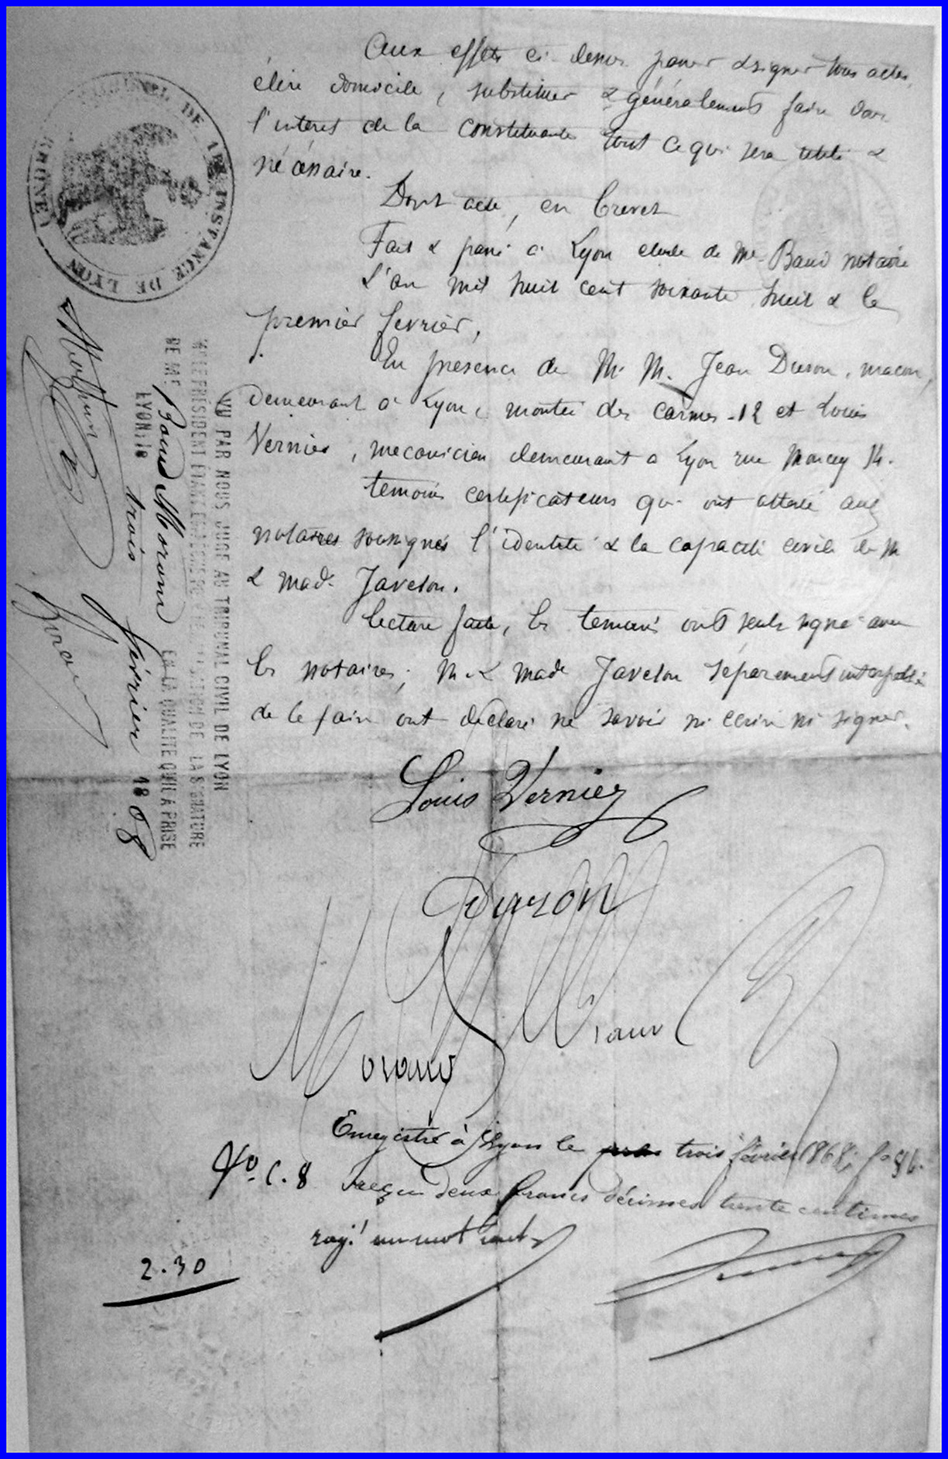 Aux effets ci dessus passer & signer tous actes,
élire domicile, substituer & généralement faire dans
l'intérêt de la constituante tout ce qui sera utile &
nécessaire.
Dont acte, en brevet
Fait & passé à Lyon étude de Me Baud notaire
L'an mil huit cent soixante huit & le
premier février,
En présence de M. M. Jean Duron, macon,
demeurant à Lyon montée des carmes 12 et Louis
Vernier, mecanicien demeurant a Lyon rue Moncey 14.
temoins certificateurs qui ont attesté aux
notaires soussignés l'identité & la capacité civile de M
& made Javelon.
lecture faite, les temoins ont seuls signé avec
les notaires; M. & made Javelon séparement interpellés
de le faire ont déclaré ne savoir ni écrire ni signer.
Louis Vernier
Duron
Morand
Enregistré à Lyon le trois février 1868, fo 96
Vo. C. 8 reçu deux francs décimes trente centimes
rayé un mot
2.30
TRIBUNAL DE 1RE INSTANCE DE LYON (RHONE)
VU PAR NOUS JUGE AU TRIBUNAL CIVIL DE LYON
Mr LE PRÉSIDENT ÉTANT EMPÊCHÉ LÉGALISATION DE LA SIGNATURE
DE Me Baud Morand EN LA QUALITÉ QU'IL A PRISE
LYON, le trois février 1868